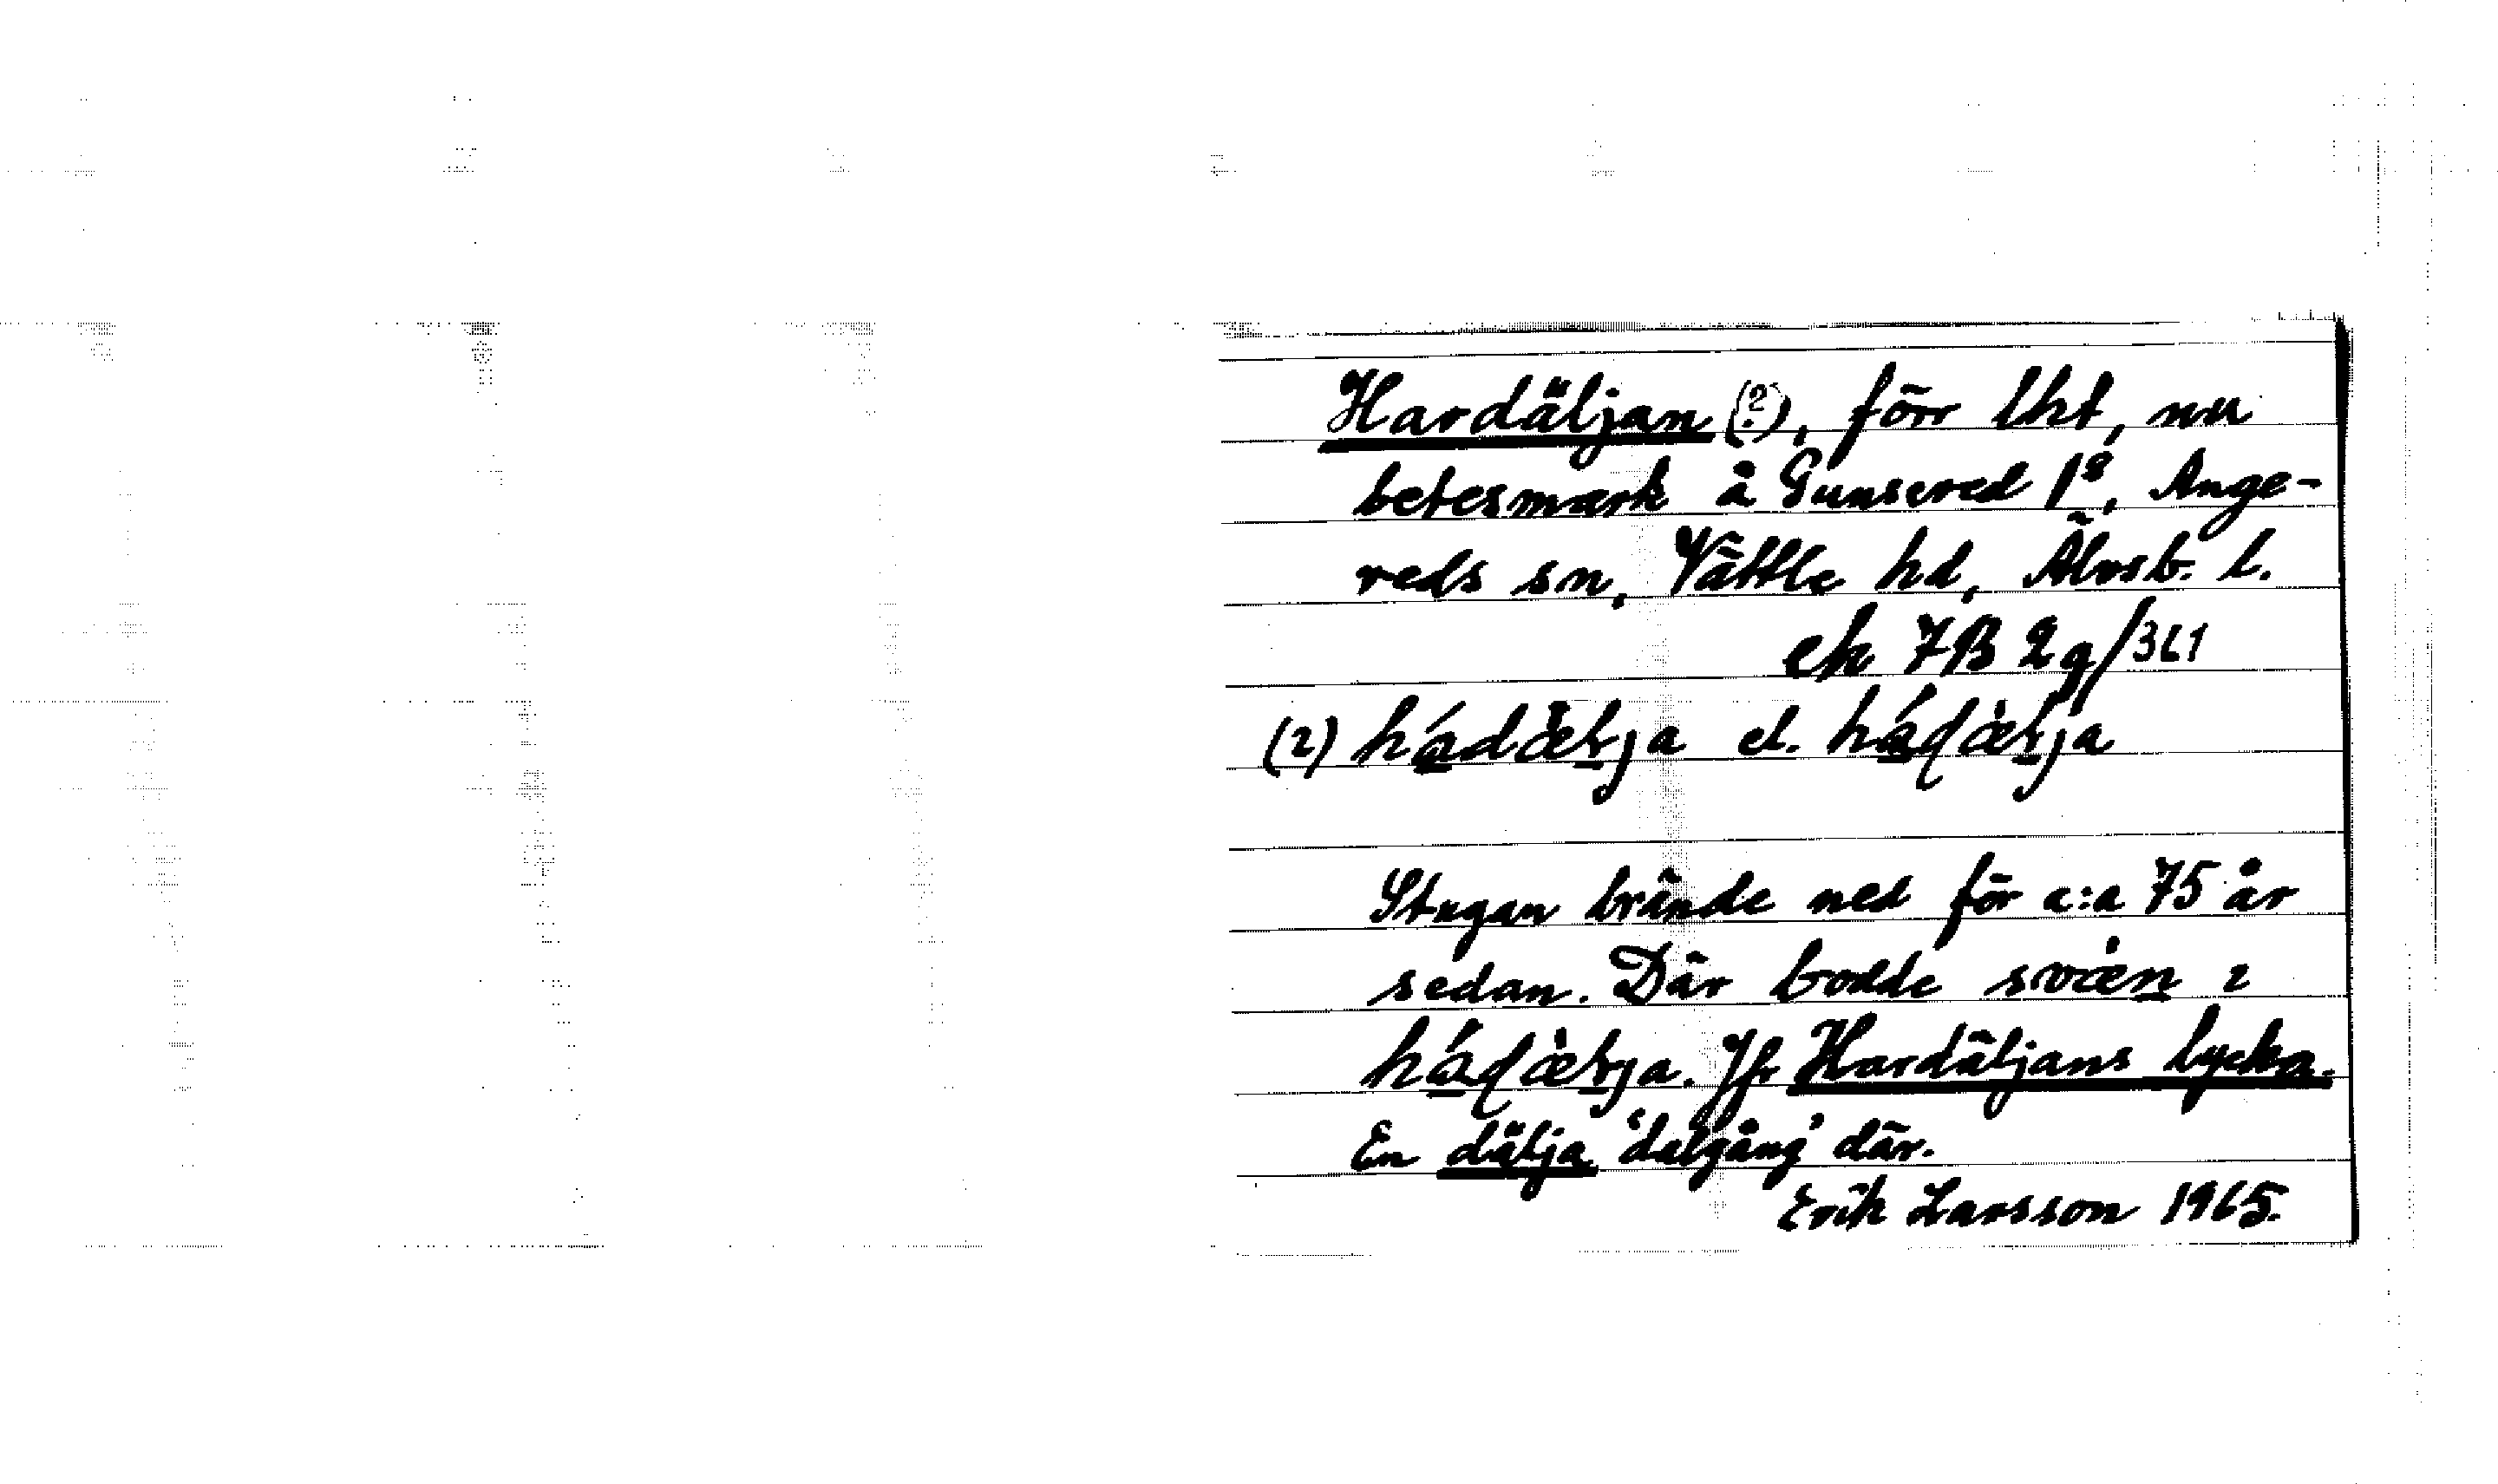 Hardäljan (?), förr lht, nu
betesmark å Gunsered 1⁸, Ange-
reds sn, Vättle hd, Älvsb. l.
ek 7B 2g/361
(2) hádæ̀ƚja el. háɖæ̀ƚja
Stugan brände ned för c:a 75 år
sedan. Där bodde svæ̀n ɩ
háɖæ̀ƚja. Jfr Hardäljans lycka.
En dälja 'dalgång' där.
Erik Larsson 1965.